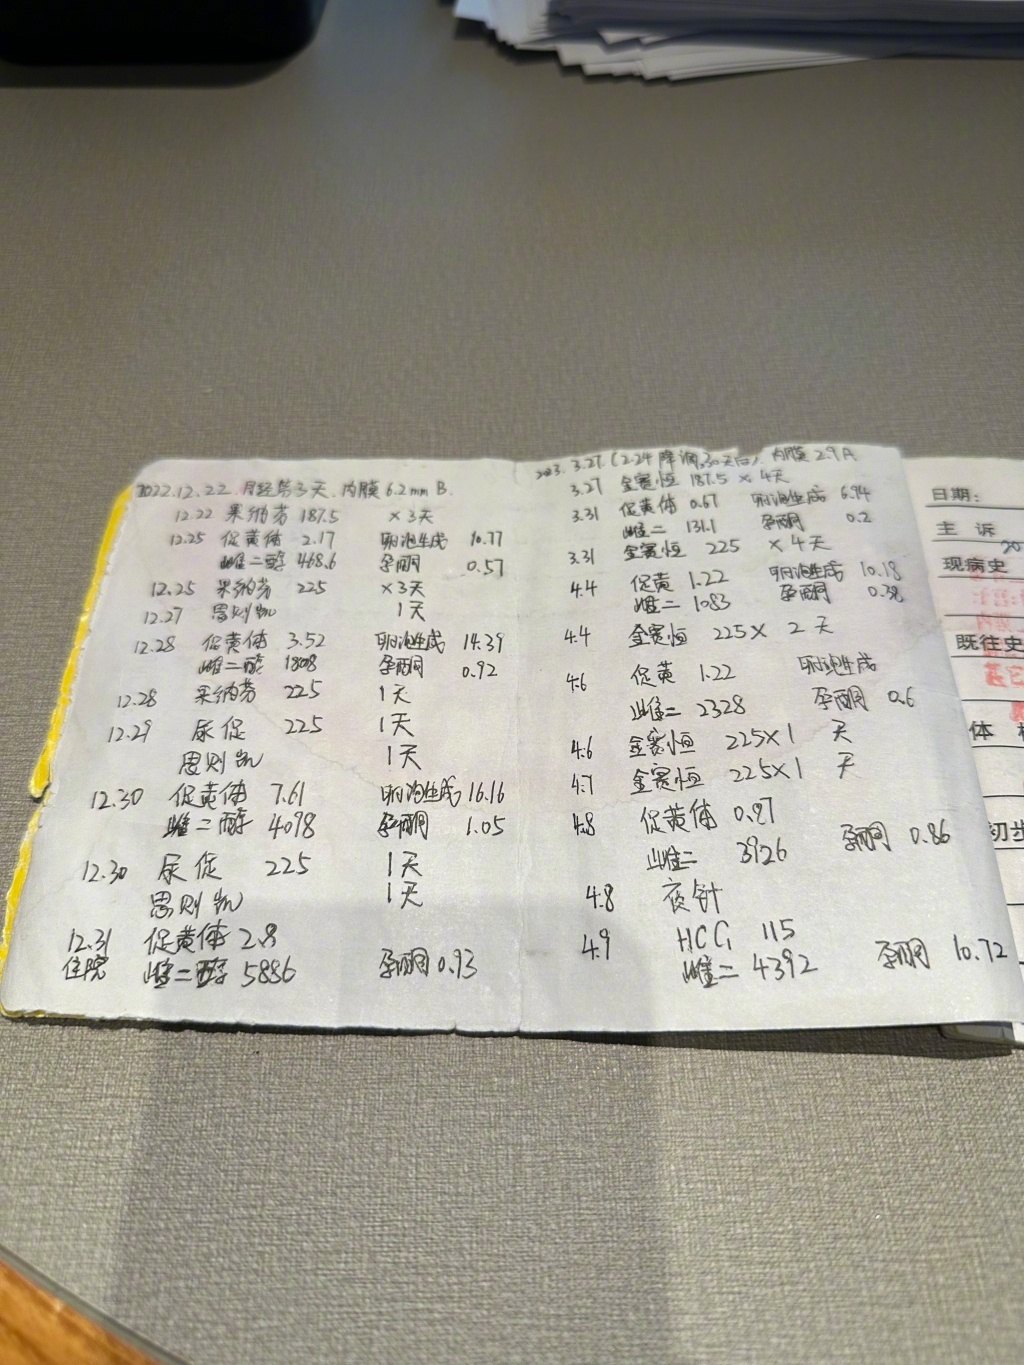 2022.12.22 月经第3天. 内膜 6.2mm B.
12.22 果纳芬 187.5 ×3天
12.25 促黄体 2.17 卵泡生成 10.77
雌二醇 468.6 孕酮 0.57
12.25 果纳芬 225 ×3天
12.27 思则凯 1天
12.28 促黄体 3.52 卵泡生成 14.39
雌二醇 1808 孕酮 0.92
12.28 果纳芬 225 1天
12.29 尿促 225 1天
思则凯 1天
12.30 促黄体 7.61 卵泡生成 16.16
雌二醇 4098 孕酮 1.05
12.30 尿促 225 1天
思则凯 1天
12.31 促黄体 2.8
住院 雌二醇 5886 孕酮 0.93
2023. 3.27. (2.24 降调, 30天后). 内膜 2.9 A
3.27 金赛恒 187.5 × 4天
3.31 促黄体 0.67 卵泡生成 6.94
雌二 131.1 孕酮 0.2
3.31 金赛恒 225 × 4天
4.4 促黄 1.22 卵泡生成 10.18
雌二 1083 孕酮
4.4 金赛恒 225× 2天
4.6 促黄 1.22 卵泡生成
雌二 2328 孕酮 0.6
4.6 金赛恒 225×1 天
4.7 金赛恒 225×1 天
4.8 促黄体 0.87
雌二 3926 孕酮 0.86
4.8 夜针
4.9 HCG 115
雌二 4392 孕酮 10.72
日期:
主诉
20
现病史
既往史
其它
体
初步